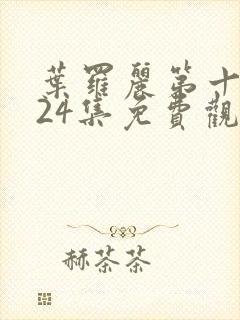 葉羅麗第十
24集免費觀
赫茶茶